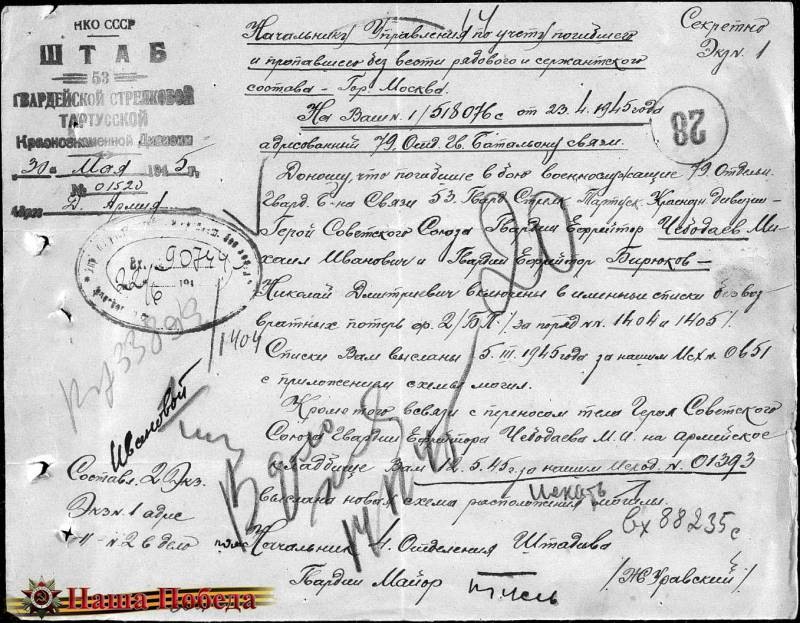 НКО СССР
ШТАБ
53
ГВАРДЕЙСКОЙ СТРЕЛКОВОЙ
ТАРТУССКОЙ
Краснознаменной Дивизии
30 Мая 1945 г.
№ 01520
Д. Армия
Секретно
Экз. 1
Начальнику Управления по учету погибшего
и пропавшего без вести рядового и сержантского
состава – Гор. Москва.
На Ваш н. 1/518076с от 23.4.1945 года
адресованный 79 Отд. Гв. Батальону связи.
28
Доношу, что погибшие в бою военнослужащие 79 Отдельн.
Гвард. Б-на Связи 53 Гвард. Стрелк. Тартус. Краснозн. дивизии –
Герой Советского Союза Гвардии Ефрейтор Чебодаев Ми-
хаил Иванович и Гвардии Ефрейтор Бирюков –
Николай Дмитриевич включены в именные списки безвоз
вратных потерь ф. 2/БП/ за поряд. нн. 1404 и 1405/.
Списки Вам высланы 5.III.1945 года за нашим Исх. н. 0651
с приложением схемы могил.
Кроме того в связи с переносом тела Героя Советского
Союза Гвардии Ефрейтора Чебодаева М.И. на армейское
кладбище Вам 12.5.45 г. за нашим Исход. н. 01393
выслана новая схема расположения могилы.
Начальник 4. Отделения Штадива
Гвардии Майор /Журавский/
Вх. 90744
22/6
1404
20
Искать
вх 88235с
Ивановой
Составл. 2 Экз.
Экз н. 1 адре
–"– н 2 в дело
Наша Победа